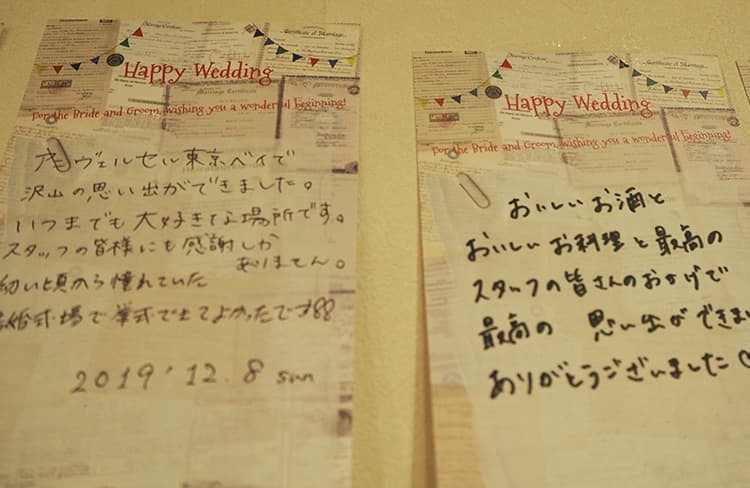 Happy Wedding
For the Bride and Groom, wishing you a wonderful beginning!
アニヴェルセル東京ベイで
沢山の思い出ができました。
いつまでも大好きな場所です。
スタッフの皆様にも感謝しか
ありません。
幼い頃から憧れていた
結婚式場で挙式できてよかったです
2019.'12.8 sun
Certificate of Marriage
Happy Wedding
For the Bride and Groom, wishing you a wonderful beginning!
おいしいお酒と
おいしいお料理と最高の
スタッフの皆さんのおかげで
最高の 思い出ができまし
ありがとうございました♡